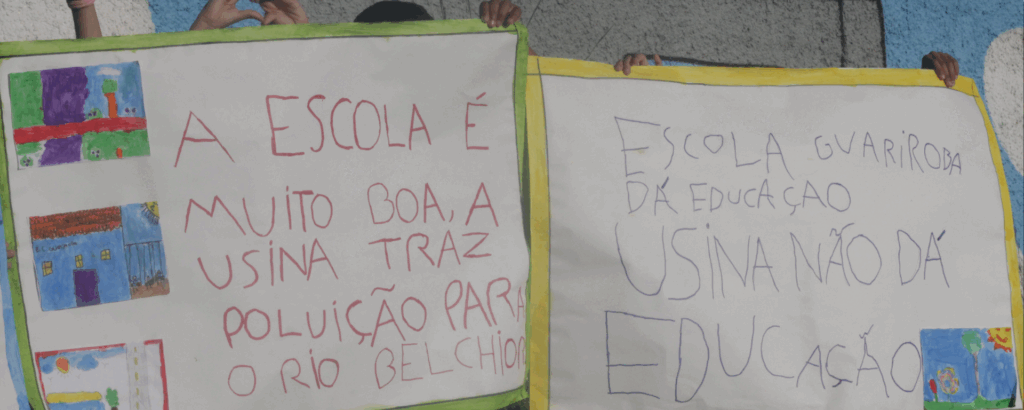 A ESCOLA É
MUITO BOA, A
USINA TRAZ
POLUIÇÃO PARA
O RIO BELCHIOR
ESCOLA GUARIROBA
DÁ EDUCAÇAO
USINA NÃO DÁ
EDUCAÇÃO